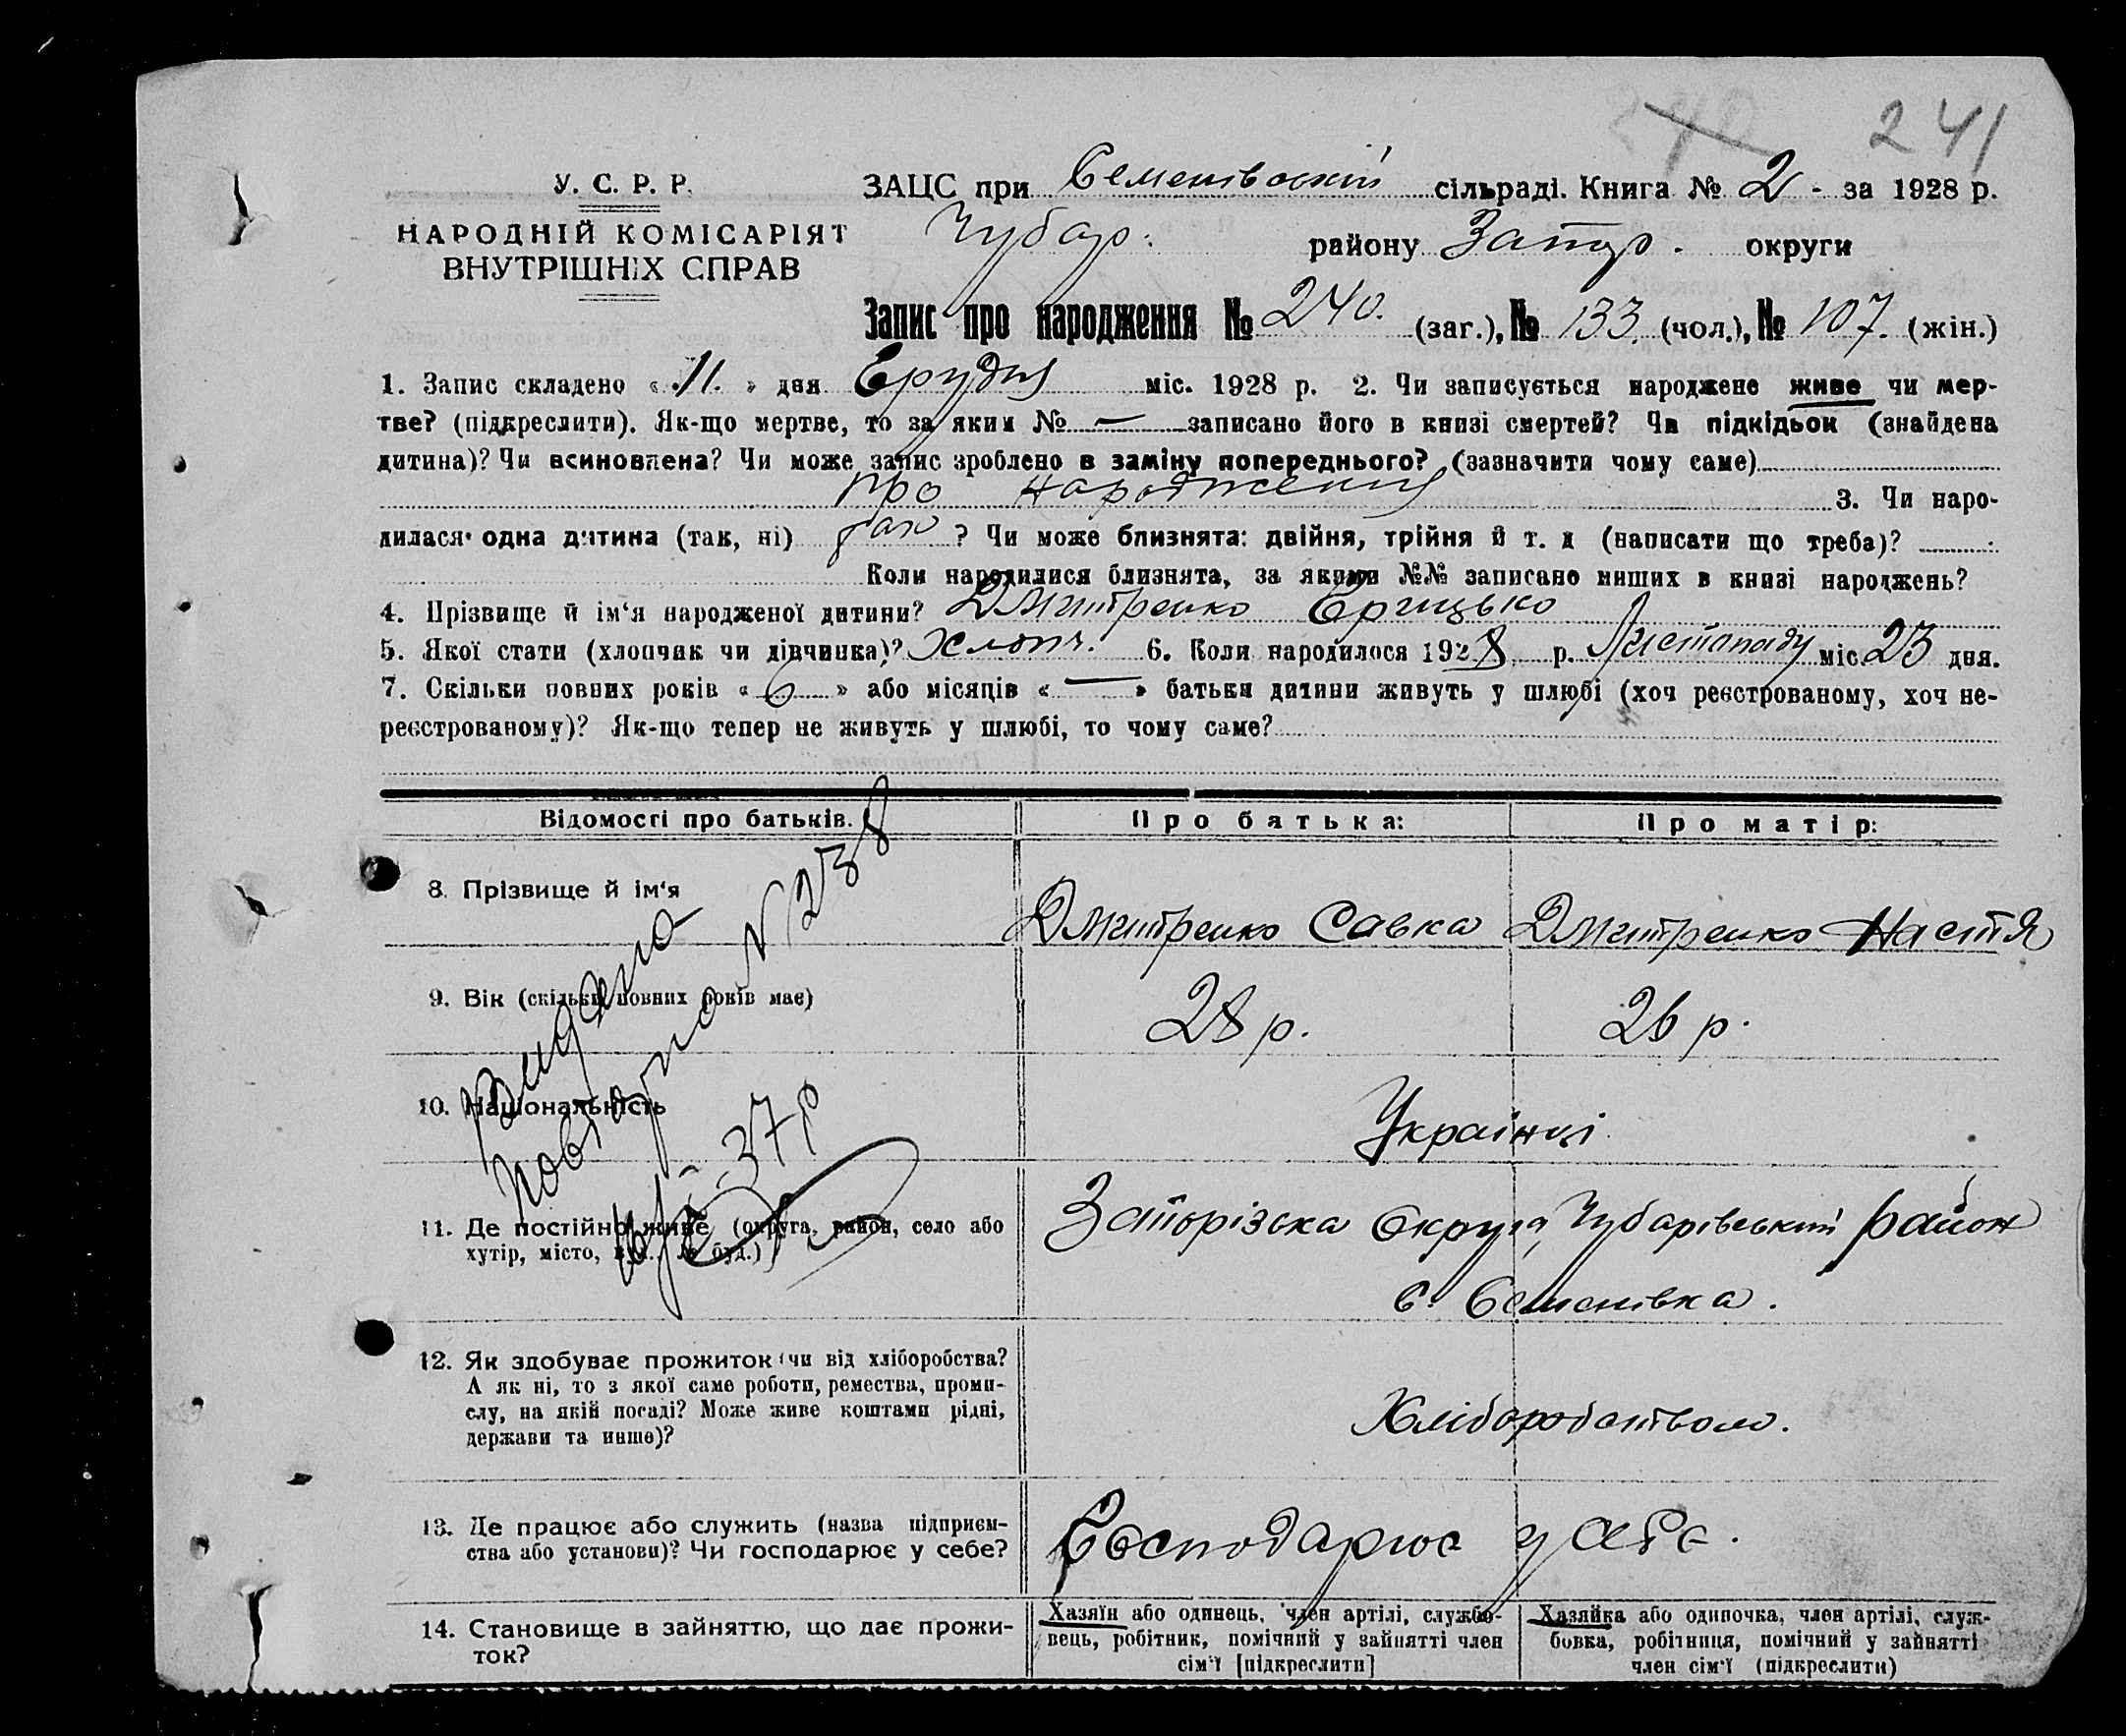 241
У. С. Р. Р.
НАРОДНІЙ КОМІСАРІЯТ
ВНУТРІШНІХ СПРАВ
ЗАЦС при Семенівській сільраді. Книга № 2 - за 1928 р.
Чубар. району Запор. округи
Запис про народження № 240. (заг.), № 133. (чол.), № 107. (жін.)
1. Запис складено « 11. » дня Грудня міс. 1928 р. 2. Чи записується народжене живе чи мер-
тве? (підкреслити). Як-що мертве, то за яким № — записано його в книзі смертей? Чи підкідьок (знайдена
дитина)? Чи всиновлена? Чи може запис зроблено в заміну попереднього? (зазначити чому саме)
про народження 3. Чи наро-
дилася одна дитина (так, ні) так ? Чи може близнята: двійня, трійня й т. д (написати що треба)?
Коли народилися близнята, за якими №№ записано инших в книзі народжень?
4. Прізвище й ім‘я народженої дитини? Дмитренко Грицько
5. Якої стати (хлопчик чи дівчинка)? Хлопч. 6. Коли народилося 1928 р. Листопаду міс. 23 дня.
7. Скільки повних років « 6 » або місяців « — » батьки дитини живуть у шлюбі (хоч реєстрованому, хоч не-
реєстрованому)? Як-що тепер не живуть у шлюбі, то чому саме?
Відомості про батьків. Про батька: Про матір:
8. Прізвище й ім‘я Дмитренко Савка Дмитренко Настя
9. Вік (скільки повних років має) 28 р. 26 р.
10. Національність Українці
11. Де постійно живе (округа, район, село або Запорізска Округа, Чубарівський район
хутір, місто, вул., № буд.) с. Семенівка.
Видано
повторно № 238
37 р
12. Як здобуває прожиток (чи від хліборобства?
А як ні, то з якої саме роботи, ремества, проми-
слу, на якій посаді? Може живе коштами рідні,
держави та инше)?
Хліборобством.
13. Де працює або служить (назва підприєм-
ства або установи)? Чи господарює у себе?
Господарює у себе.
14. Становище в зайняттю, що дає прожи-
ток?
Хазяїн або одинець, член артілі, службо-
вець, робітник, помічний у зайнятті член
сім‘ї [підкреслити]
Хазяйка або одиночка, член артілі, служ-
бовка, робітниця, помічний у зайнятті
член сім‘ї (підкреслити)